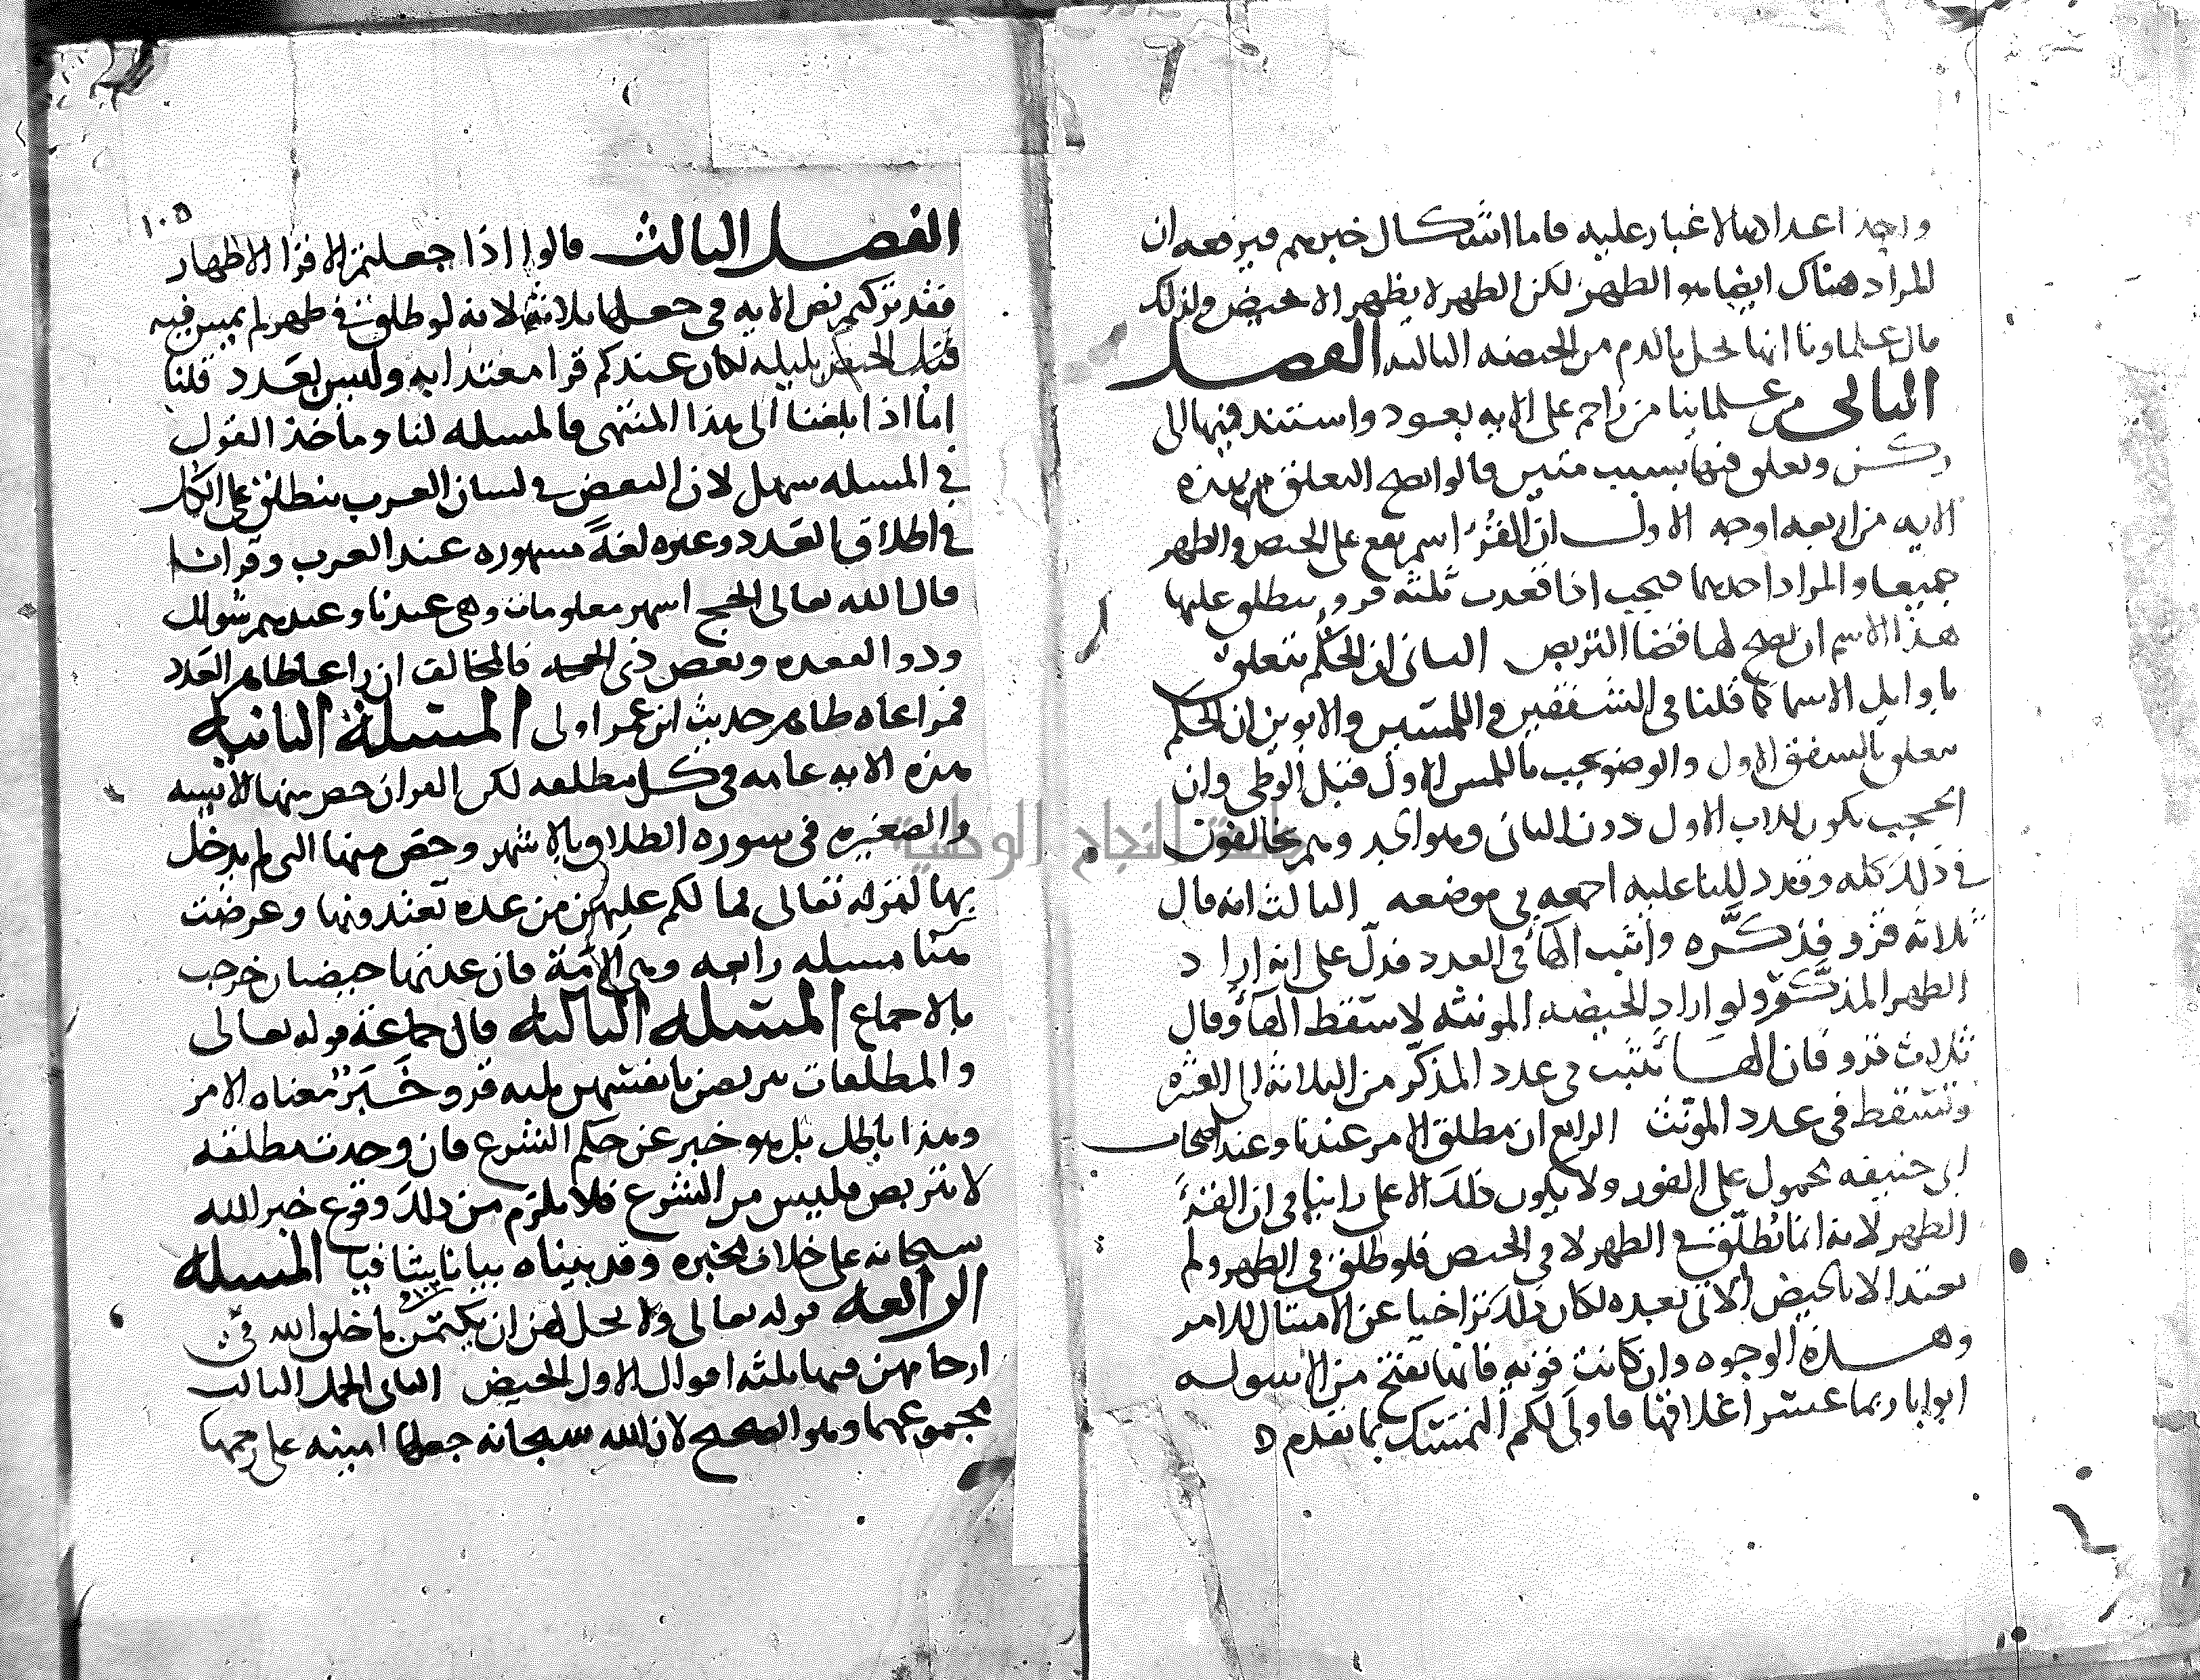 واحد اعدادها لا غبار عليه فاما اشكال خبرهم فيرفعه ان
المراد هناك ايضا هو الطهر لكن الطهر لا يظهر الا بحيض ولذلك
قال علماونا انها تحل بالدم من الحيضه الثالثه الفصل
الثاني من علماينا من زاحم على الايه بعود واستند فيها الى
ركن وتعلق فيها بسبب متين قالوا يصح التعلق من هذه
الايه من اربعه اوجه الاول ان القُرْءَ اسم يقع على الحيض والطهر
جميعا والمراد احدهما فيجب اذا قعدت ثلثة قروء ينطلق عليها
هذا الاسم ان يصح لها قضا التربص الثاني ان الحكم يتعلق
باوايل الاسما كما قلنا في الشفقين واللمسين والابوين ان الحكم
يتعلق بالشفق الاول والوضو يجب باللمس الاول قبل الوطي وان
الحجب يكون للاب الاول دون الثاني وهو ابي وهم يخالفون
في ذلك كله وقد دللنا عليه اجمعه في موضعه الثالث انه قال
ثلاثة قرو فذكَّره واثبت الهآ في العدد فدلّ على انه اراد
الطهر المذكّر ولو اراد الحيضه المونثه لاسقط الهآ وقال
ثلاث قرو فان الهآ تثبت في عدد المذكّر من الثلاثة الى العشره
وتسقط في عدد المؤنث الرابع ان مطلق الامر عندنا وعند اصحاب
ابي حنيفه محمول على الفور ولا يكون ذلك الا على راينا في ان القُرْءَ
الطهر لانه انما يُطلّق في الطهر لا في الحيض فلو طلق في الطهر ولم
تعتد الا بالحيض الاتى بعده لكان ذلك تراخيا عن الامتثال للامر
وهذه الوجوه وان كانت قويه فانها تفتح من الاسوله
ابوابا ربما عسر اغلاقها فاولى لكم التمسّك بما تقدم
١٠٥
الفصل الثالث قالوا اذا جعلتم الاقرا الاظهار
فقد تركتم نص الايه في جعلها ثلاثة لانه لو طلق في طهر لم يمس فيه
قبل الحيض بليله لكان عندكم قرا معتدا به وليس بعَدد قلنا
اما اذا بلغنا الى هذا المنتهى فالمسله لنا وماخذ القول
في المسله سهل لان البعض في لسان العرب ينطلق على الكل
في اطلاق العَدد وغيره لغةً مشهوره عند العرب وقراناً
قال الله تعالى الحج اشهر معلومات وهي عندنا وعندهم شوال
وذو القعده وبعض ذي الحجه فالمخالف ان راعا ظاهر العَدد
فمراعاه ظاهر حديث ابن عمر اولى المسئلة الثانيه
هذه الايه عامه في كل مطلقه لكن القران خص منها الآيسه
والصغيره في سوره الطلاق بالاشهر وخصّ منها التى لم يدخل
بها لقوله تعالى فما لكم عليهن من عده تعتدونها وعرضت
هنا مسله رابعه وهي الامة فان عدتها حيضتان خرجت
بالاجماع المسئله الثالثه قال جماعة قوله تعالى
والمطلقات يتربصن بانفسهن ثلثه قرو خَبَرٌ معناه الامر
وهذا باطل بل هو خبر عن حكم الشرع فان وجدت مطلقه
لا تتربص فليس من الشرع فلا يلزم من ذلك وقوع خبر الله
سبحانه على خلاف مخبره وقد بيناه بيانا شافيا المسله
الرابعه قوله تعالى ولا يحل لهن ان يكتمن ما خلق الله في
ارحامهن فيها ثلثه اقوال الاول الحيض الثانى الحمل الثالث
مجموعهما وهو الصحيح لان الله سبحانه جعلها امينه على رحمها
جامعة النجاح الوطنية